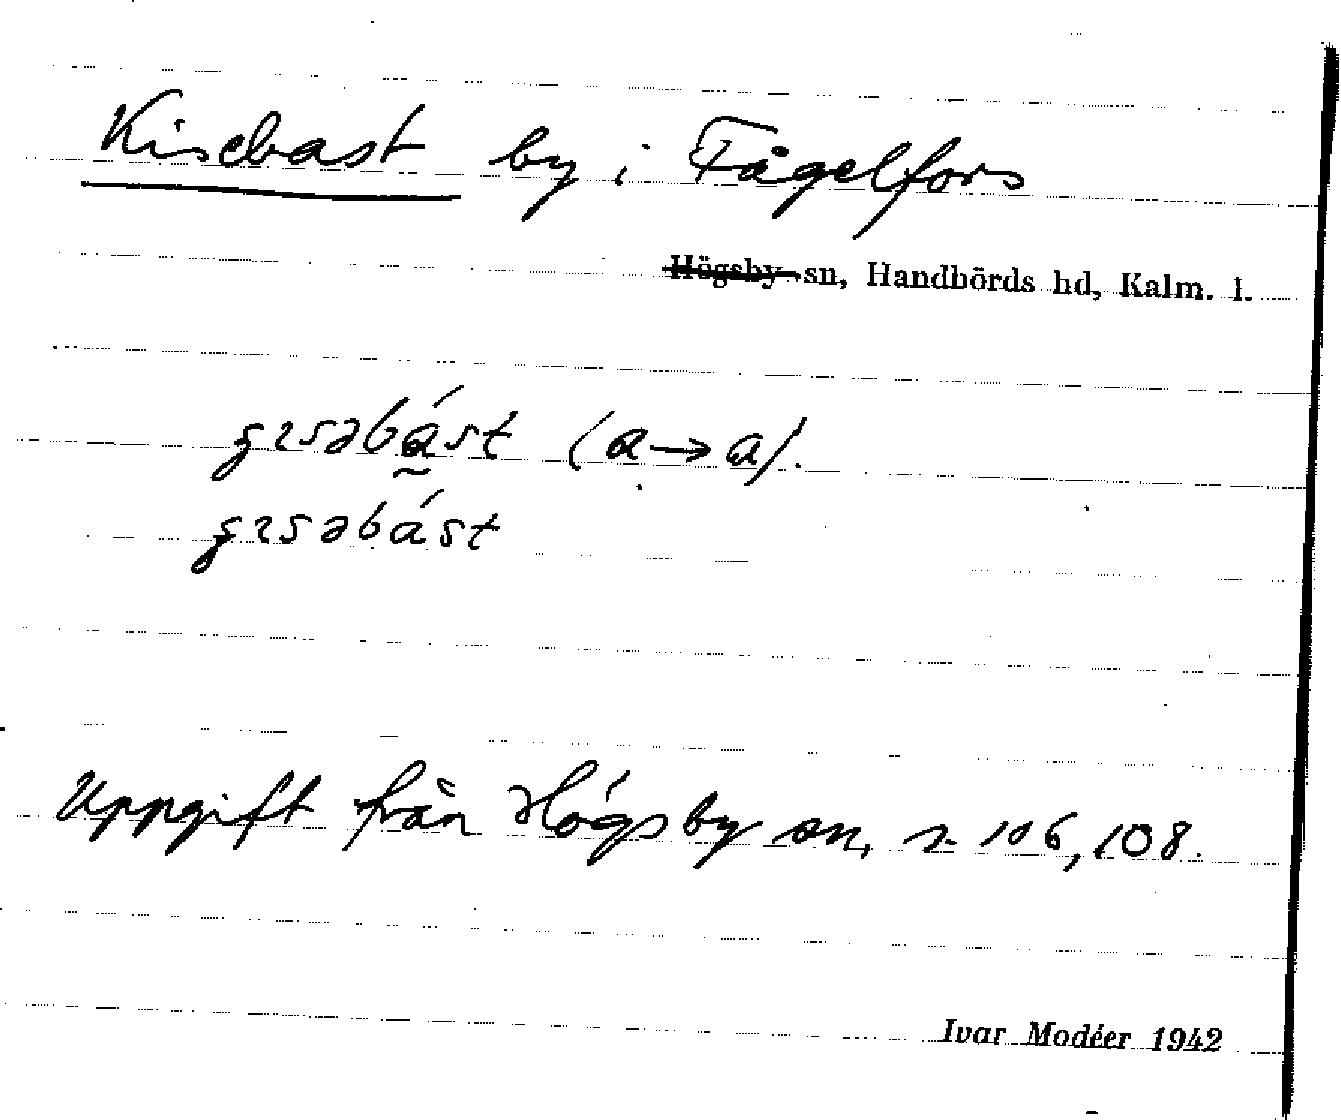 Kisebast by i Fågelfors
Högsby sn, Handbörds hd, Kalm. l.
gɪsəbást (a→a).
gɪsəbást
Uppgift från Högsby sn, s. 106, 108.
Ivar Modéer 1942